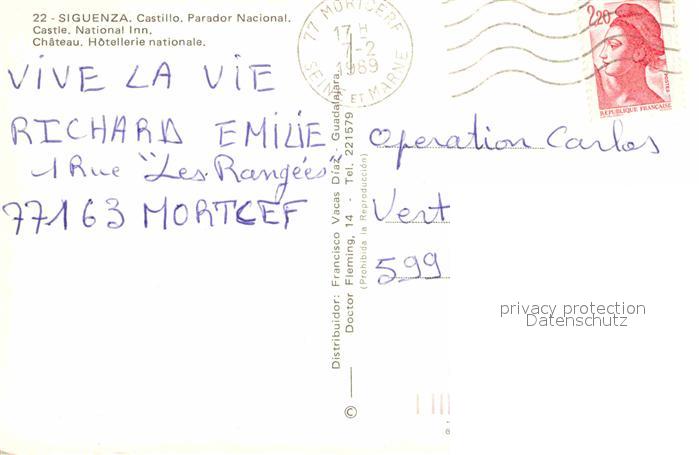 22 - SIGUENZA. Castillo. Parador Nacional.
Castle. National Inn.
Château. Hôtellerie nationale.
VIVE LA VIE
RICHARD EMILIE
1 Rue "Les Rangées"
77163 MORTCEF
Distribuidor: Francisco Vacas Díaz - Guadalajara.
Doctor Fleming, 14 - Tel. 221579
(Prohibida la Reproducción)
©
77 MORTCERF
17 H
7-2
1989
SEINE ET MARNE
2,20
POSTES
REPUBLIQUE FRANÇAISE
Operation Carlos
Vert
599
privacy protection
Datenschutz